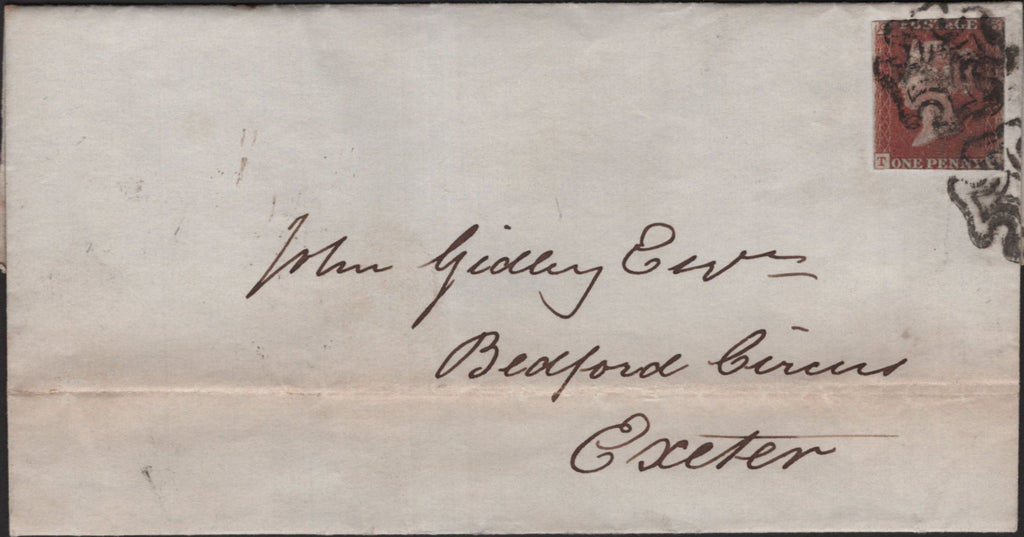 POSTAGE
T ONE PENNY
John Gidley Esqre
Bedford Circus
Exeter